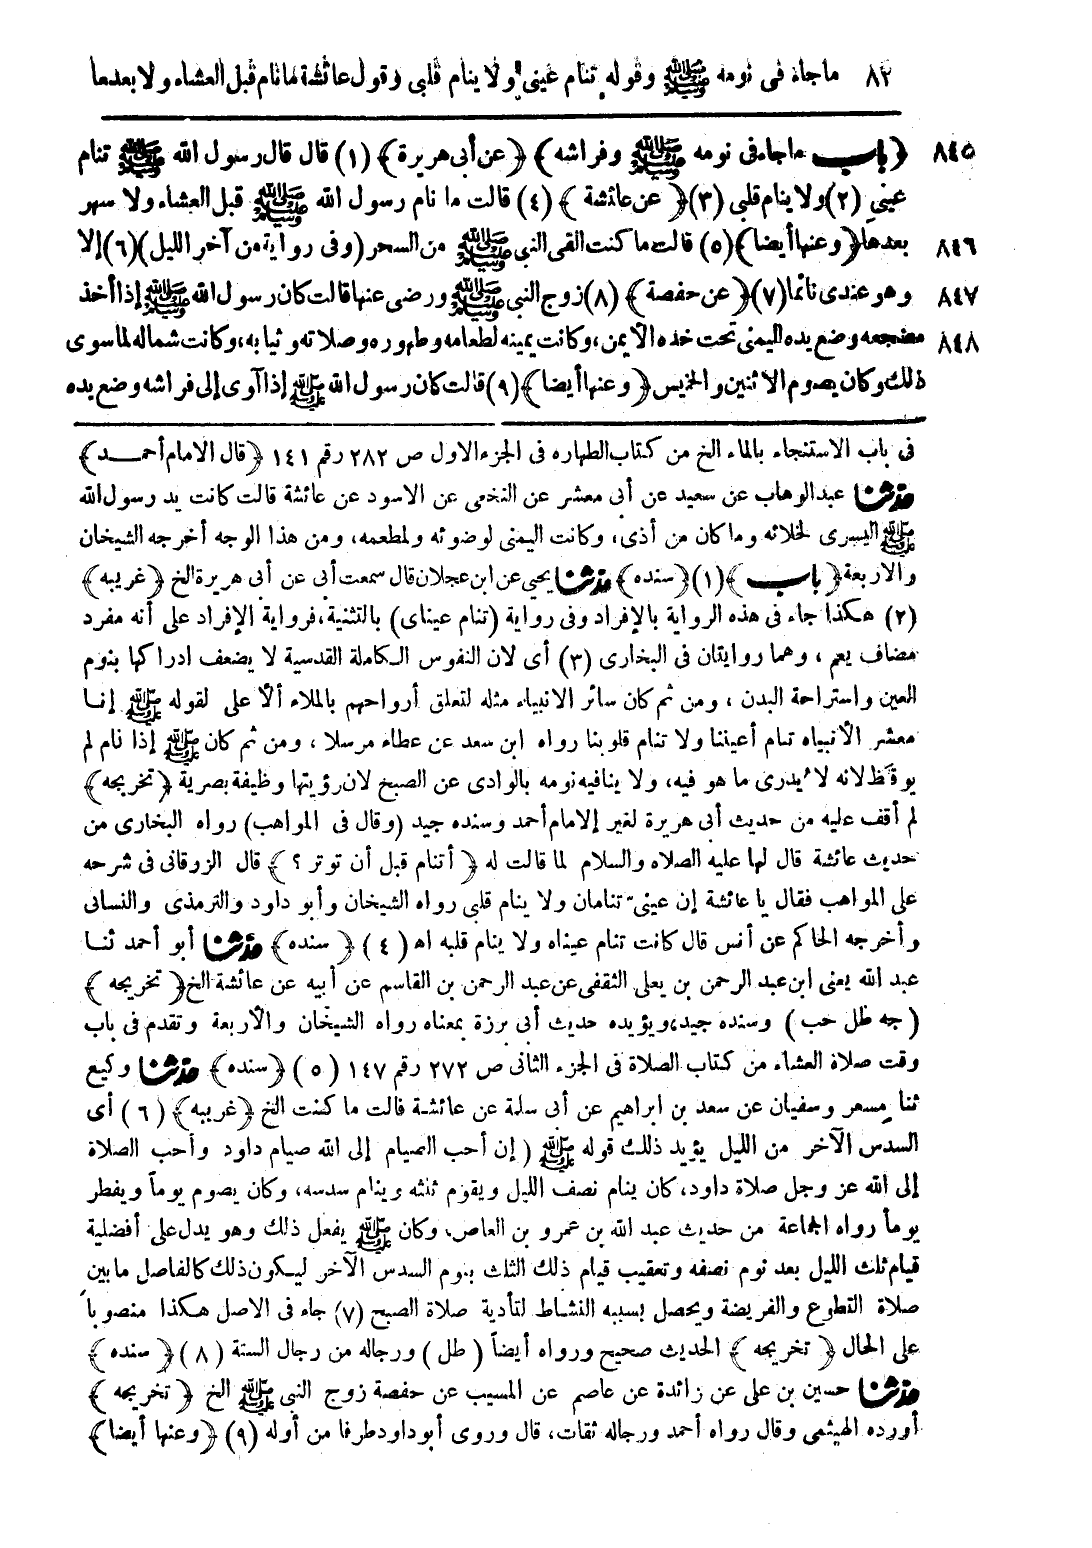 ٨٢ ماجاء فى نومه ﷺ وقوله تنام عينى ولا ينام قلبى وقول عائشة مانام قبل العشاء ولا بعدها
٨٤٥ ﴿باب ماجاء فى نومه ﷺ وفراشه﴾ ﴿عن أبى هريرة﴾ (١) قال قال رسول الله ﷺ تنام
عينى (٢) ولا ينام قلبى (٣) ﴿عن عائشة﴾ (٤) قالت ما نام رسول الله ﷺ قبل العشاء ولا سهر
٨٤٦ بعدها ﴿وعنها أيضا﴾ (٥) قالت ما كنت القى النبى ﷺ من السحر (وفى رواية من آخر الليل) (٦) إلا
٨٤٧ وهو عندى نائما (٧) ﴿عن حفصة﴾ (٨) زوج النبى ﷺ ورضى عنها قالت كان رسول الله ﷺ إذا أخذ
٨٤٨ مضجعه وضع يده اليمنى تحت خده الأيمن، وكانت يمينه لطعامه وطهوره وصلاته وثيابه، وكانت شماله لما سوى
ذلك وكان يصوم الاثنين والخميس ﴿وعنها أيضا﴾ (٩) قالت كان رسول الله ﷺ إذا آوى إلى فراشه وضع يده
فى باب الاستنجاء بالماء الخ من كتاب الطهاره فى الجزء الاول ص ٢٨٢ رقم ١٤١ ﴿قال الامام أحمد﴾
حدثنا عبد الوهاب عن سعيد عن أبى معشر عن النخعى عن الاسود عن عائشة قالت كانت يد رسول الله
ﷺ اليسرى لخلائه وما كان من أذى، وكانت اليمنى لوضوئه ولمطعمه، ومن هذا الوجه أخرجه الشيخان
والاربعة ﴿باب﴾ (١) ﴿سنده﴾ حدثنا يحيى عن ابن عجلان قال سمعت أبى عن أبى هريرة الخ ﴿غريبه﴾
(٢) هكذا جاء فى هذه الرواية بالإفراد وفى رواية (تنام عيناى) بالتثنية، فرواية الإفراد على أنه مفرد
مضاف يعم، وهما روايتان فى البخارى (٣) أى لان النفوس الكاملة القدسية لا يضعف ادراكها بنوم
العين واستراحة البدن، ومن ثم كان سائر الانبياء مثله لتعلق أرواحهم بالملاء ألأ على لقوله ﷺ إنا
معشر الأنبياء تنام أعيننا ولا تنام قلوبنا رواه ابن سعد عن عطاء مرسلا، ومن ثم كان ﷺ إذا نام لم
يوقظ لانه لا يدرى ما هو فيه، ولا ينافيه نومه بالوادى عن الصبح لان رؤيتها وظيفة بصرية ﴿تخريجه﴾
لم أقف عليه من حديث أبى هريرة لغير الإمام أحمد وسنده جيد (وقال فى المواهب) رواه البخارى من
حديث عائشة قال لها عليه الصلاه والسلام لما قالت له ﴿أتنام قبل أن توتر؟﴾ قال الزوقانى فى شرحه
على المواهب فقال يا عائشة إن عينى تنامان ولا ينام قلبى رواه الشيخان وأبو داود والترمذى والنسائى
وأخرجه الحاكم عن أنس قال كانت تنام عيناه ولا ينام قلبه اه (٤) ﴿سنده﴾ حدثنا أبو أحمد ثنا
عبد الله يعنى ابن عبد الرحمن بن يعلى الثقفى عن عبد الرحمن بن القاسم عن أبيه عن عائشة الخ ﴿تخريجه﴾
(جه طل حب) وسنده جيد، ويؤيده حديث أبى برزة بمعناه رواه الشيخان والأربعة وتقدم فى باب
وقت صلاة العشاء من كتاب الصلاة فى الجزء الثانى ص ٢٧٢ رقم ١٤٧ (٥) ﴿سنده﴾ حدثنا وكيع
ثنا مسعر وسفيان عن سعد بن ابراهيم عن أبى سلمة عن عائشة قالت ما كنت الخ ﴿غريبه﴾ (٦) أى
السدس الآخر من الليل يؤيد ذلك قوله ﷺ (إن أحب الصيام إلى الله صيام داود وأحب الصلاة
إلى الله عز وجل صلاة داود، كان ينام نصف الليل ويقوم ثلثه وينام سدسه، وكان يصوم يوماً ويفطر
يوماً رواه الجماعة من حديث عبد الله بن عمرو بن العاص، وكان ﷺ يفعل ذلك وهو يدل على أفضلية
قيام ثلث الليل بعد نوم نصفه وتعقيب قيام ذلك الثلث بنوم السدس الآخر ليكون ذلك كالفاصل ما بين
صلاة التطوع والفريضة ويحصل بسببه النشاط لتأدية صلاة الصبح (٧) جاء فى الاصل هكذا منصوباً
على الحال ﴿تخريجه﴾ الحديث صحيح ورواه أيضاً (طل) ورجاله من رجال الستة (٨) ﴿سنده﴾
حدثنا حسين بن على عن زائدة عن عاصم عن المسيب عن حفصة زوج النبى ﷺ الخ ﴿تخريجه﴾
أورده الهيثمى وقال رواه أحمد ورجاله ثقات، قال وروى أبو داود طرفا من أوله (٩) ﴿وعنها أيضا﴾